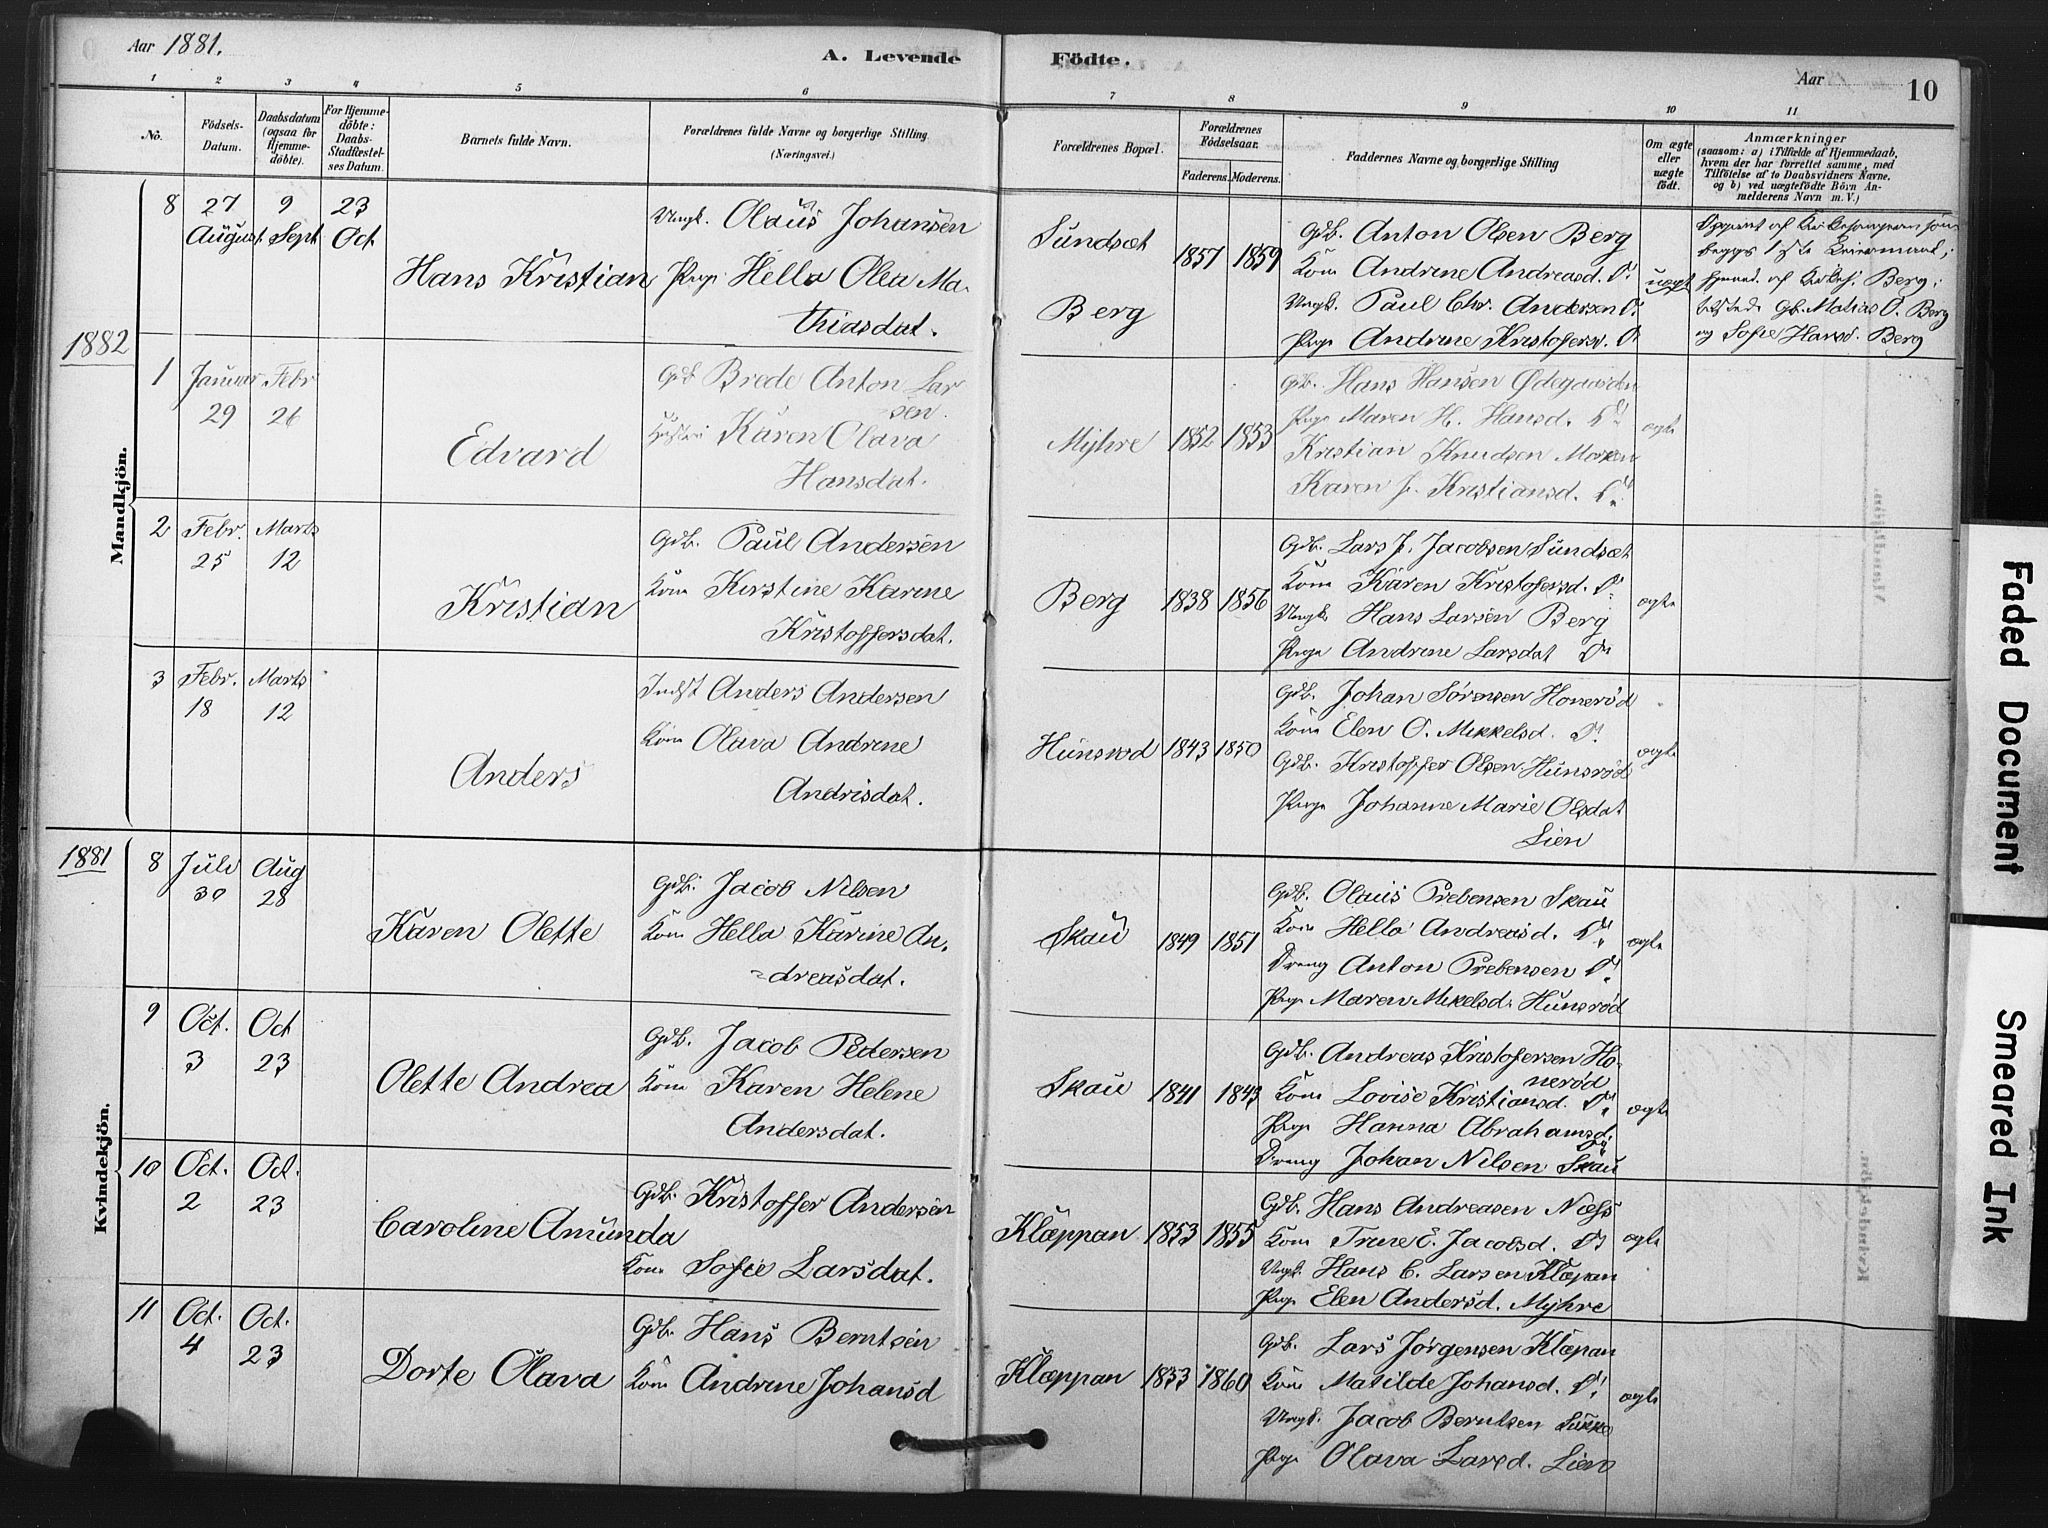 Aar 1881.
A. Levende Födte.
Aar
10
1 2 3 4 5 6 7 8 9 10 11
No.
Födsels-Datum.
Daabsdatum (ogsaa for Hjemme-döbte).
For Hjemme-döbte: Daabs-Stadfæstel-ses Datum.
Barnets fulde Navn.
Forældrenes fulde Navne og borgerlige Stilling
(Næringsvei.)
Forældrenes Bopæl.
Forældrenes Födselsaar.
Faderens. Moderens.
Faddernes Navne og borgerlige Stilling
Om ægte eller uægte födt.
Anmærkninger
(saasom: a) i Tilfælde af Hjemmedaab,
hvem der har forrettet samme, med
Tilföielse af to Daabsvidners Navne,
og b) ved uægtefödte Börn An-
melderens Navn m. V.)
Mandkjön.
8 27 August 9 Sept 23 Oct
Hans Kristian
Ungk. Olaus Johansen
Pige Hella Olea Ma-
thiasdat.
Sundsæt
Berg
1857 1859
Gdb. Anton Olsen Berg
Kone Andrine Andreasd. D°
Ungk. Paul Chr. Andersen D°
Pige Andrine Kristofersd. D°
uægt
begges 1ste Leiermaal;
Berg;
Gb. Matias O. Berg
og Sofie Hansd. Berg
1882
1 Januar 29 Febr 26
Edvard
Gdb Brede Anton Lar
sen.
Hustru Karen Olava
Hansdat.
Myhre 1852 1853
Gb. Hans Hansen Ødegaarden
Pige Maren H. Hansd. D°
Kristian Knudsen Moren
Karen J. Kristiansd. D°
ægte
2 Febr. 25 Marts 12
Kristian
Gdb. Paul Andersen
Kone Kirstine Karine
Kristoffersdat.
Berg 1838 1856
Gdb. Lars J. Jacobsen Sundsæt
Kone Karen Kristofersd. D°
Ungk. Hans Larsen Berg
Pige Andrine Larsdat D°
ægte
3 Febr. 18 Marts 12
Anders
Indst Anders Andersen
Kone Olava Andrine
Andrisdat.
Hunsrod 1843 1850
Gdb. Johan Sørensen Honerød
Kone Elen O. Mikkelsd. D°
Gdb. Kristoffer Olsen Hunsrød
Pige Johanne Marie Olsdat
Lien
ægte
Kvindekjön.
1881
8 Juli 30 Aug 28
Karen Olette
Gdb. Jacob Nilsen
Kone Hella Karine An-
dreasdat.
Skau 1849 1851
Gdb. Olaus Prebensen Skau
Kone Hella Andreasd. D°
Dreng Anton Prebensen D°
Pige Maren Mikelsd. Hunsrød
ægte
9 Oct. 3 Oct 23
Olette Andrea
Gdb. Jacob Pedersen
Kone Karen Helene
Andersdat.
Skau 1841 1843
Gdb. Andreas Kristofersen Ho-
nerød
Kone Lovise Kristiansd. D°
Pige Hanna Abrahamsd. D°
Dreng Johan Nilsen Skau
ægte
10 Oct. 2 Oct. 23
Caroline Amunda
Gdb. Kristoffer Andersen
Kone Sofie Larsdat.
Klæppan 1853 1855
Gdb. Hans Andreasen Næss
Kone Trine E. Jacobsd. D°
Ungk. Hans C. Larsen Klæpan
Pige Elen Andersd. Myhre
ægte
11 Oct. 4 Oct. 23
Dorte Olava
Gdb. Hans Berntsen
Kone Andrine Johansd
Klæppan 1853 1860
Gdb. Lars Jørgensen Klæpan
Kone Matilde Johansd. D°
Ungk. Jacob Berntsen
Pige Olava Larsd. Lien
ægte
Faded Document
Smeared Ink